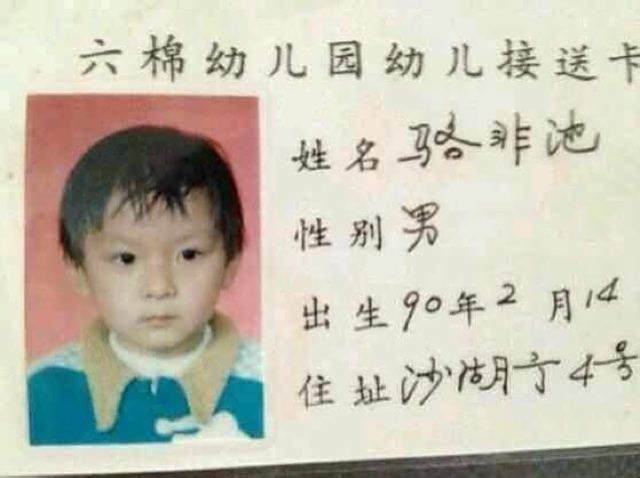 六棉幼儿园幼儿接送卡
姓名 骆非池
性别 男
出生 90年2月14
住址 沙湖 4号